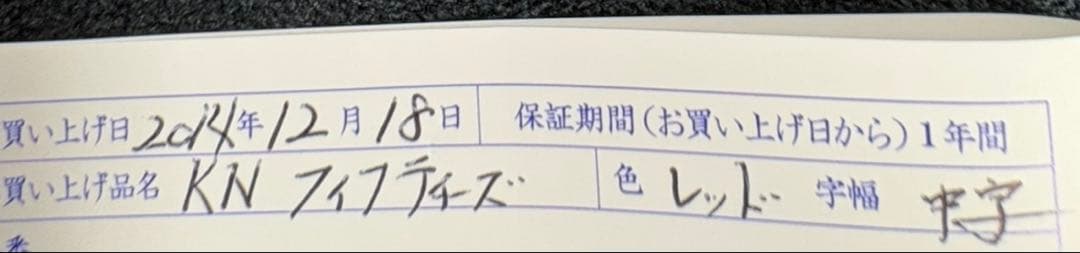 買い上げ日 2014年 12月 18日 保証期間(お買い上げ日から)1年間
買い上げ品名 KN フィフティーズ 色 レッド 字幅 中字